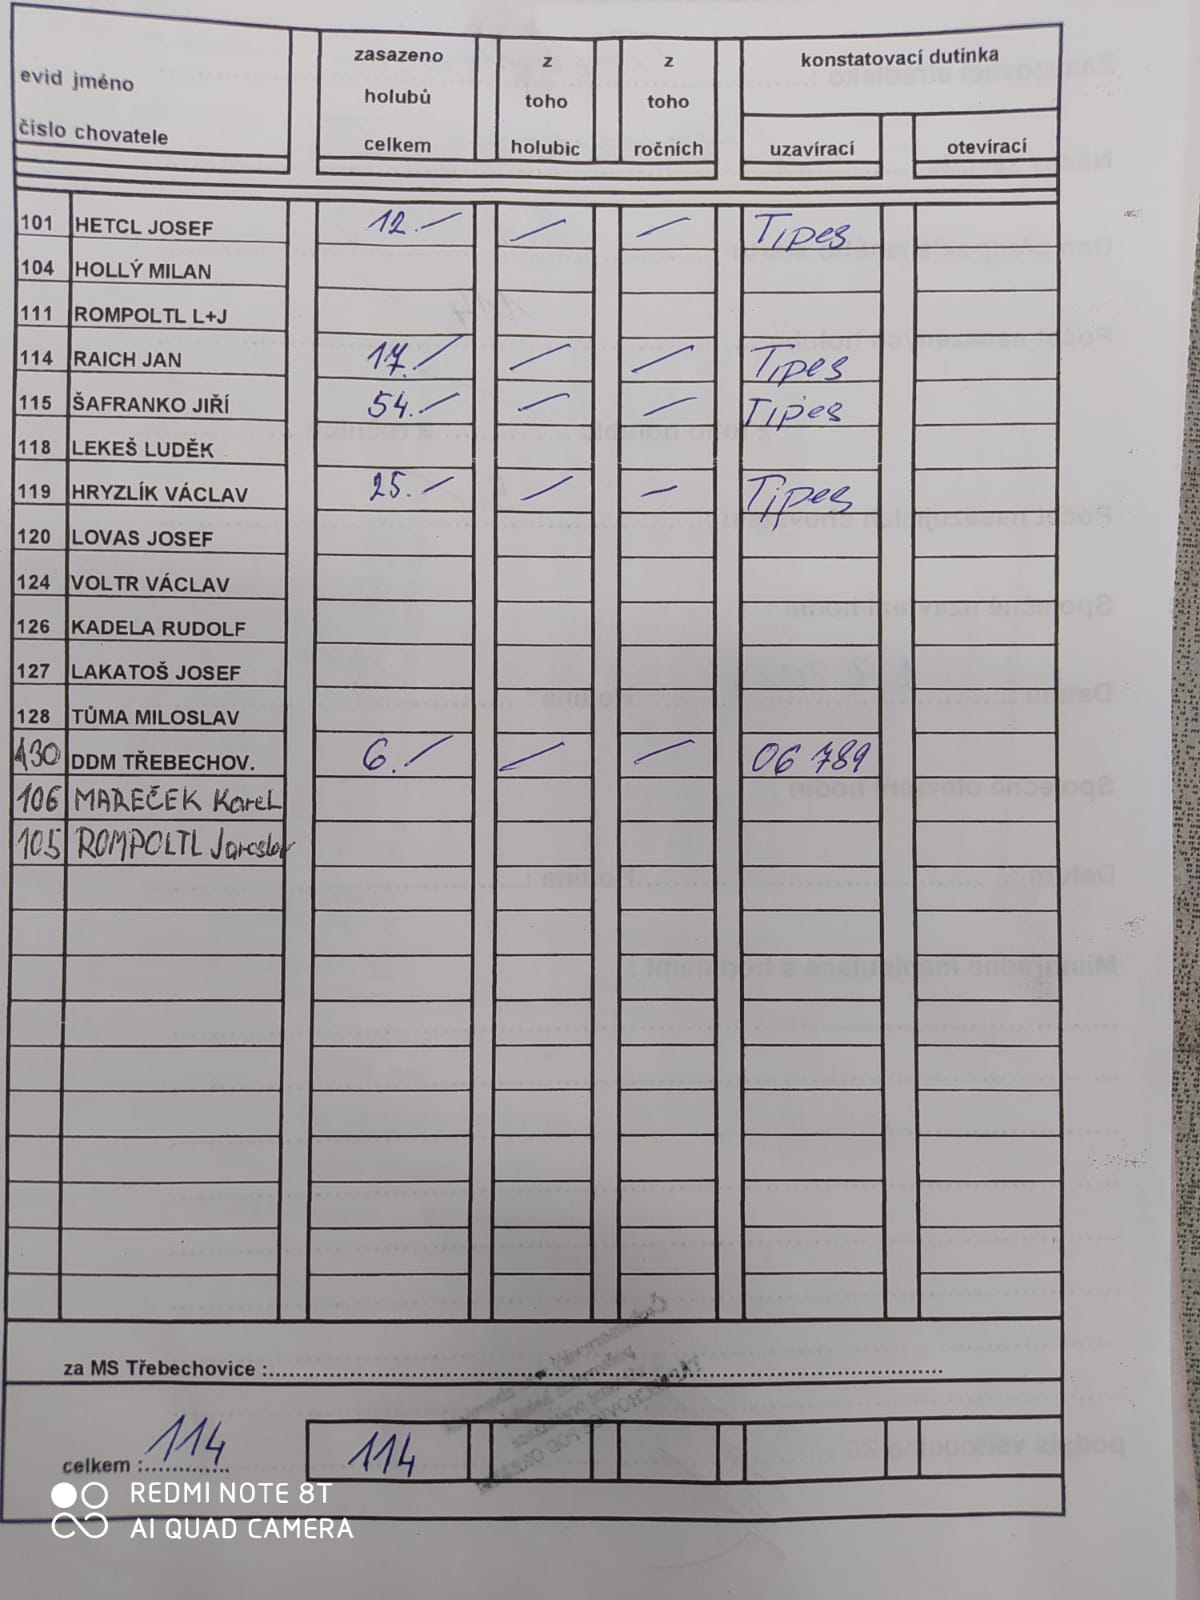 evid jméno
číslo chovatele
zasazeno
holubů
celkem
z
toho
holubic
z
toho
ročních
konstatovací dutinka
uzavírací
otevírací
101 HETCL JOSEF 12.– – – Tipes
104 HOLLÝ MILAN
111 ROMPOLTL L+J
114 RAICH JAN 17.– – – Tipes
115 ŠAFRANKO JIŘÍ 54.– – – Tipes
118 LEKEŠ LUDĚK
119 HRYZLÍK VÁCLAV 25.– – – Tipes
120 LOVAS JOSEF
124 VOLTR VÁCLAV
126 KADELA RUDOLF
127 LAKATOŠ JOSEF
128 TŮMA MILOSLAV
130 DDM TŘEBECHOV. 6.– – – 06 789
106 MAREČEK Karel
105 ROMPOLTL Jaroslav
za MS Třebechovice :
celkem : 114 114
REDMI NOTE 8T
AI QUAD CAMERA